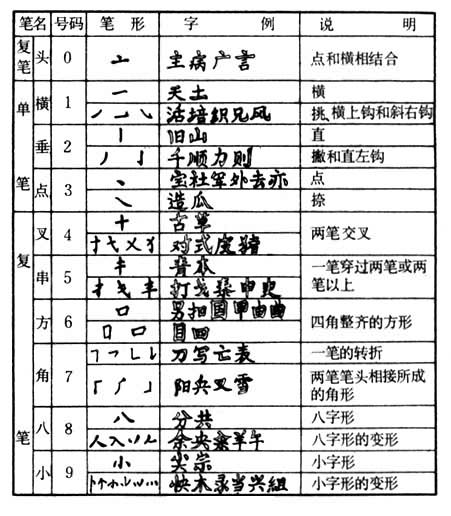 笔名 号码 笔形 字例 说明
复笔 头 0 亠 主病广言 点和横相结合
单笔 横 1 一 天土 横
活培织兄风 挑、横上钩和斜右钩
垂 2 丨 旧山 直
丿亅 千顺力则 撇和直左钩
点 3 丶 宝社军外去亦 点
㇏ 造瓜 捺
复笔 叉 4 十 古草 两笔交叉
对式皮猪
串 5 青本 一笔穿过两笔或两笔以上
打戈申史
方 6 口 男扣国甲由曲 四角整齐的方形
囗口 目四
角 7 刀写亡表 一笔的转折
阳兵又雪 两笔笔头相接所成的角形
八 8 八 分共 八字形
人入 余央羊午 八字形的变形
小 9 小 尖宗 小字形
快木录当兴組 小字形的变形